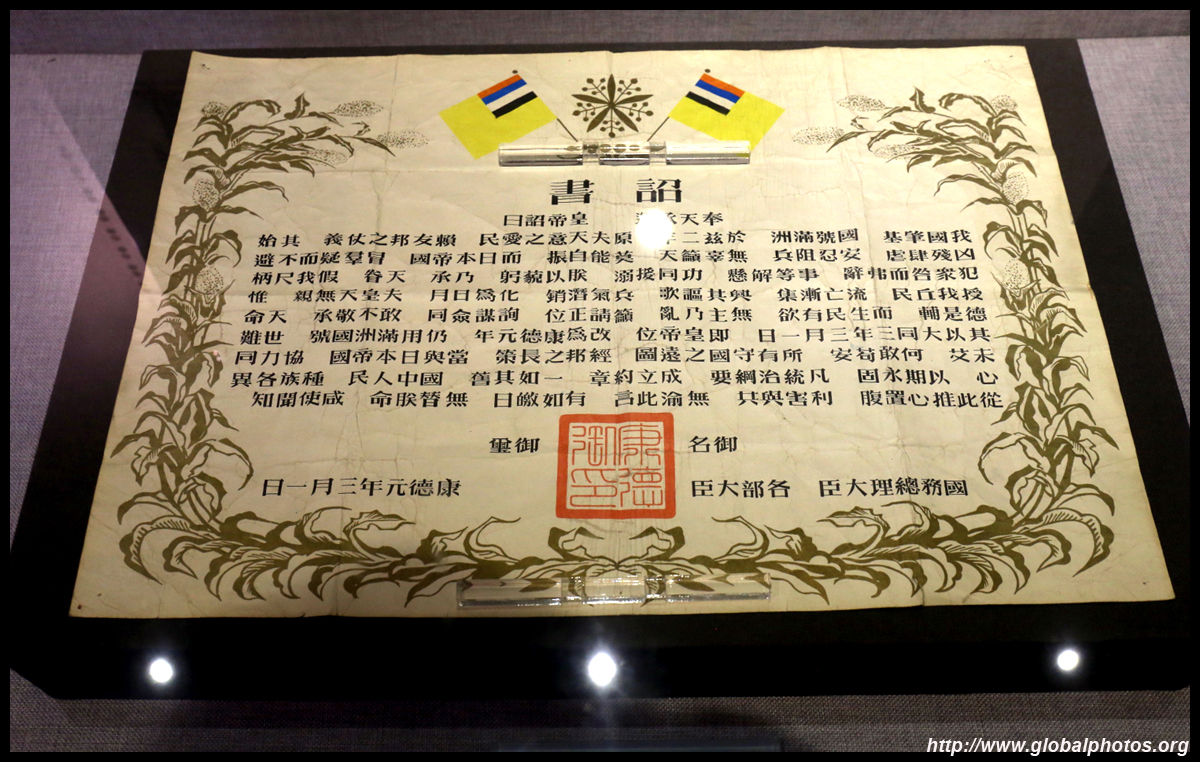 詔書
奉天承運 皇帝詔曰
我國肇基 國號滿洲 於茲二年 原夫天意之愛民 賴友邦之仗義 其始
凶殘肆虐 安忍阻兵 無辜籲天 莫能自振 而日本帝國 冒羣疑而不避
犯眾咎而弗辭 事等解懸 功同援溺 朕以藐躬 乃承 天眷 假我尺柄
授我丘民 流亡漸集 興其謳歌 兵氣潛銷 化為日月 夫皇天無親 惟
德是輔 而生民有欲 無主乃亂 籲請正位 詢謀僉同 敢不敬承 天命
其以大同三年三月一日 即皇帝位 改為康德元年 仍用滿洲國號 世難
未艾 何敢苟安 所有守國之遠圖 經邦之長策 當與日本帝國 協力同
心 以期永固 凡統治綱要 成立約章 一如其舊 國中人民 種族各異
從此推心置腹 利害與共 無渝此言 有如皦日 無替朕命 咸使聞知
御名 御璽
康德御印
國務總理大臣 各部大臣 康德元年三月一日
http://www.globalphotos.org